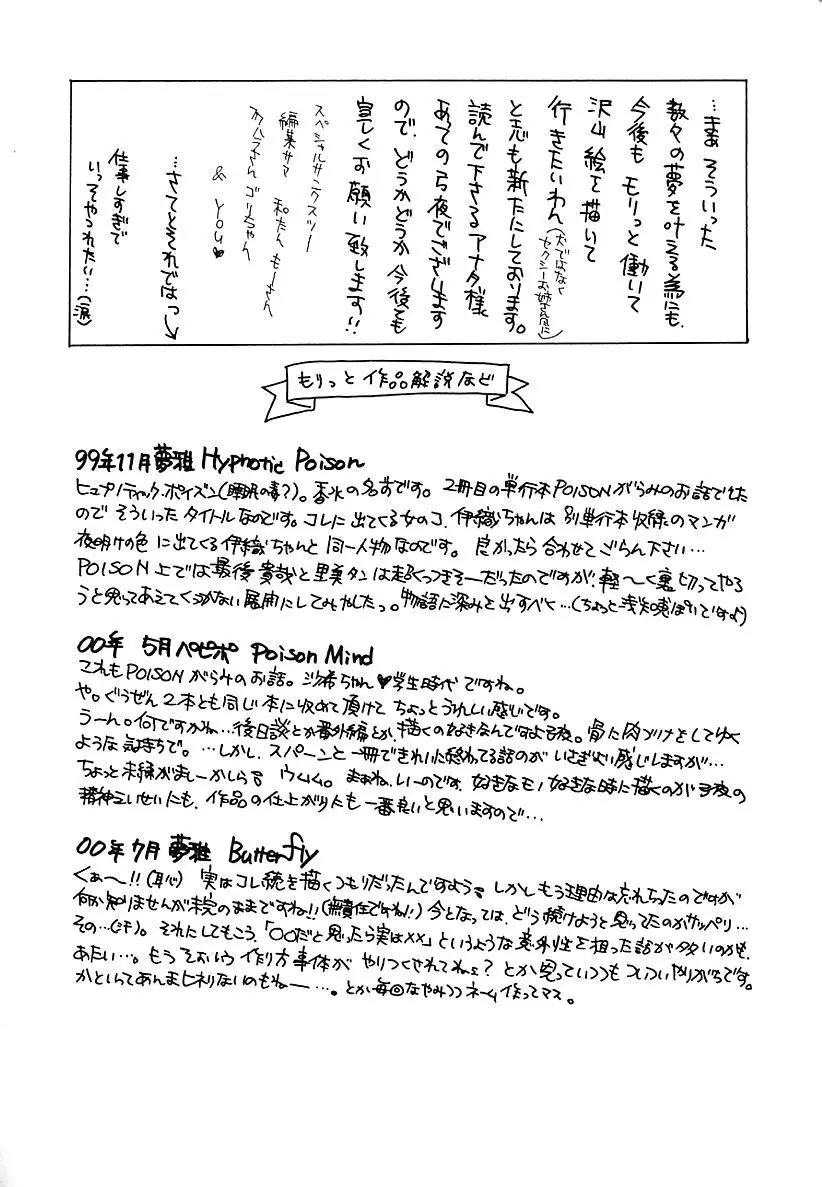 …まあ そういった
数々の夢を叶える為にも、
今後も モリっと働いて
沢山 絵を描いて
行きたいわん(犬ではなく
セクシーお姉さん風に)
と志も新たにしております。
読んで下さるアナタ様
あっての弓夜でございます
ので、どうかどうか 今後とも
宜しくお願い致します!!
スペシャルサンクスツー
編集サマ 和たん もーさん
さん ゴリちゃん
& YOU♥
…さてとそれではっ→
仕事しすぎで
いってやつれたい…(涙)
もりっと作品解説など
99年11月夢雅 Hypnotic Poison
ヒュプノティック・ポイズン(睡眠の毒?)。香水の名前です。2冊目の単行本POISONがらみのお話でした
ので そういった タイトルなのです。コレに出てくる女のコ、伊織ちゃんは 別単行本収録のマンガ
夜明けの色 に出てくる伊織ちゃんと 同一人物なのです。 良かったら 合わせて ごらん下さい…
POISON上では最後 貴哉と里美タンは超くっつきそーだったのですが、軽〜く裏切ってやろ
うと思ってあえてくっつかない展開にしてみやしたっ。物語に深みを出すべく…(ちょっと浅知恵っぽいですよ)
00年 5月ペピポ Poison Mind
これもPOISONがらみのお話。沙希ちゃん♥学生時代ですね。
や。ぐうぜん2本とも同じ本に収めて頂けて ちょっとうれしい感じです。
うーん。何ですかね…後日談とか番外編とか、描くの好きなんですよ弓夜。骨に肉づけをしてゆく
ような気持ちで。…しかし、スパーンと一冊できれいに終わってる話のが いさぎよい感じしますが…
ちょっと未練がましーかしら? ウムム。まぁね、いーのです、好きなモノ好きな時に描くのが弓夜の
精神えいせいにも、作品の仕上がりにも一番良いと思いますので…
00年7月 夢雅 Butterfly
くぁ〜!!(恥) 実はコレ続を描くつもりだったんですよう? しかしもう理由は忘れちったのですが
何か知りませんが未完のままですね!!(無責任ですね!)今となっては、どう続けようと思ってたのかサッパリ…
その…(汗)。それにしてもこう、「○○だと思ったら実は××」というような意外性を狙った話が多いのかも、
あたい…。もうそおいう作り方事体が やりつくされてねぇ? とか思っていつつも ついついやりがちです。
かといってあんまヒネりないのもねー…。とか毎回なやみつつネーム作ってマス。